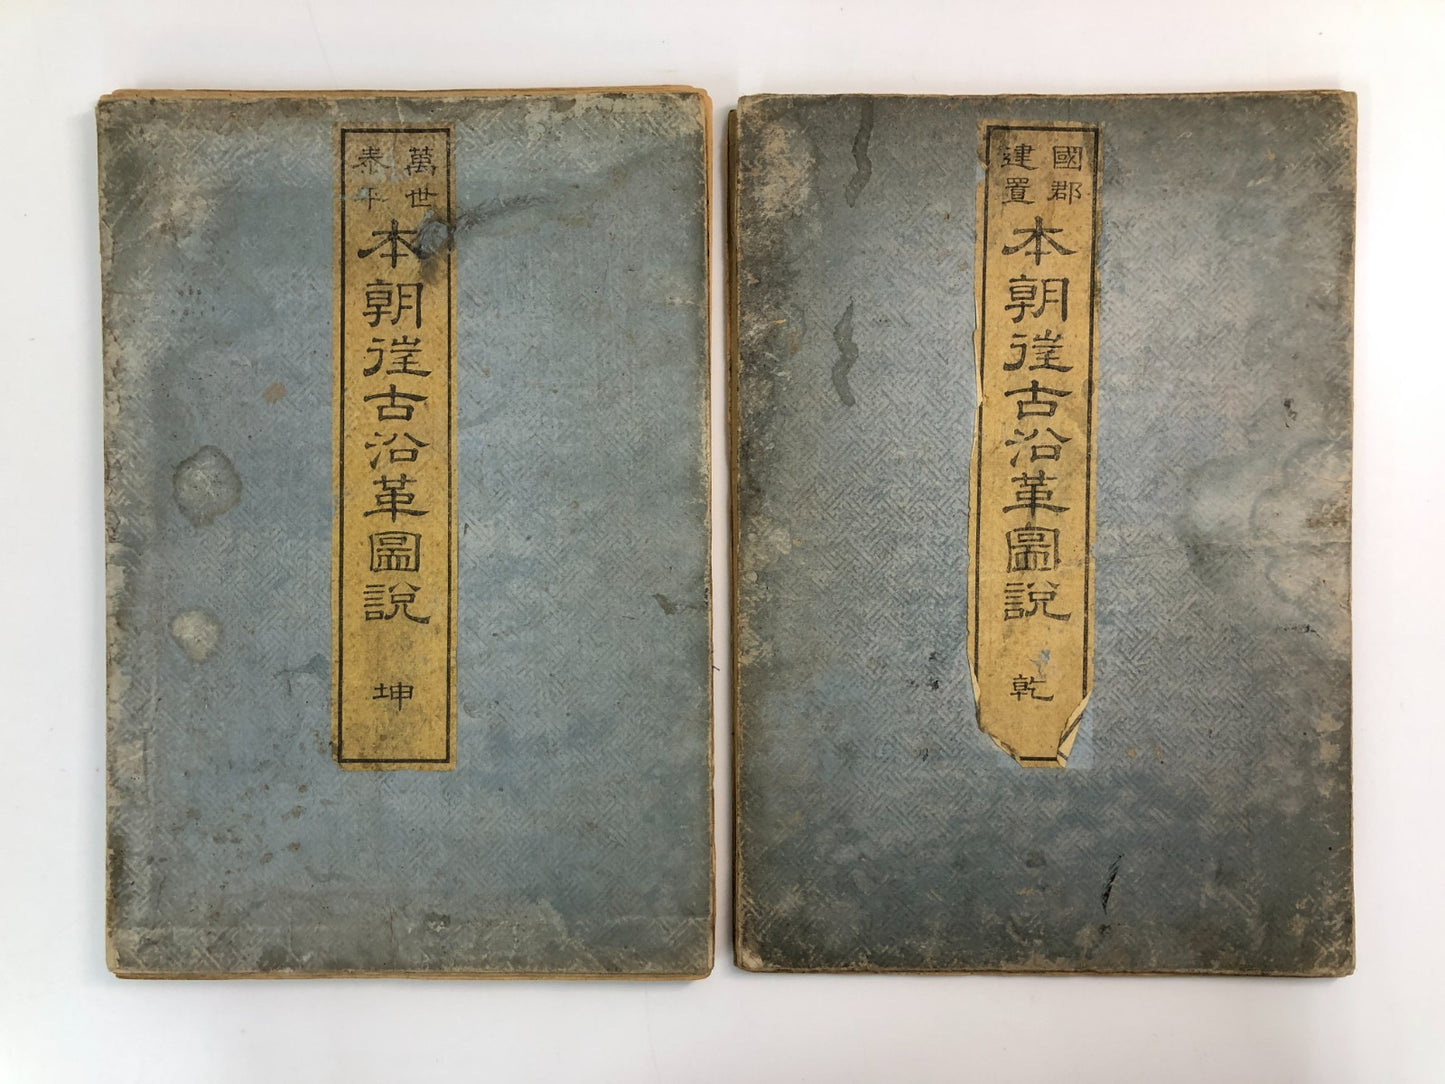 國郡
建置
本朝往古沿革圖說
乾
萬世
泰平
本朝往古沿革圖說
坤